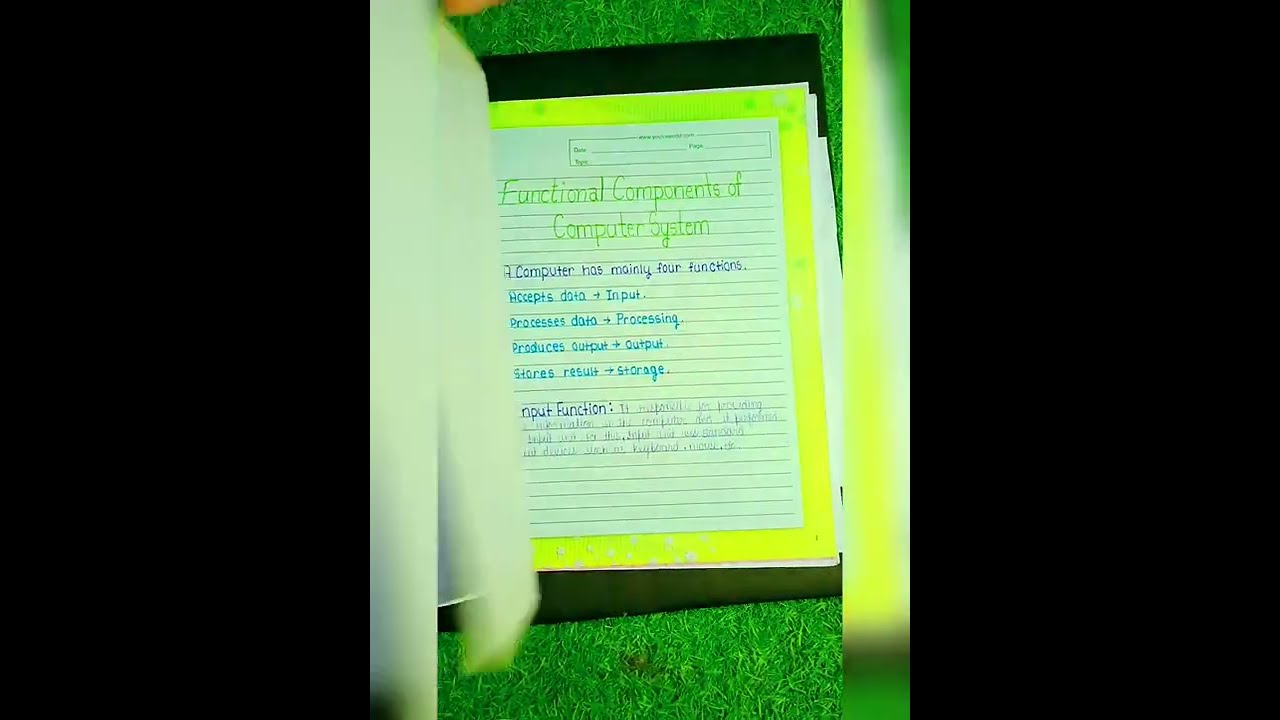 Date:
Page:
Topic:
Functional Components of
Computer System
A Computer has mainly four functions.
Accepts data → Input.
Processes data → Processing.
Produces output → output.
Stores result → storage.
nput Function: It responsible for providing
information to the computer and it performed
Input unit for this, Input unit use
devices such as keyboard, mouse, etc.
1